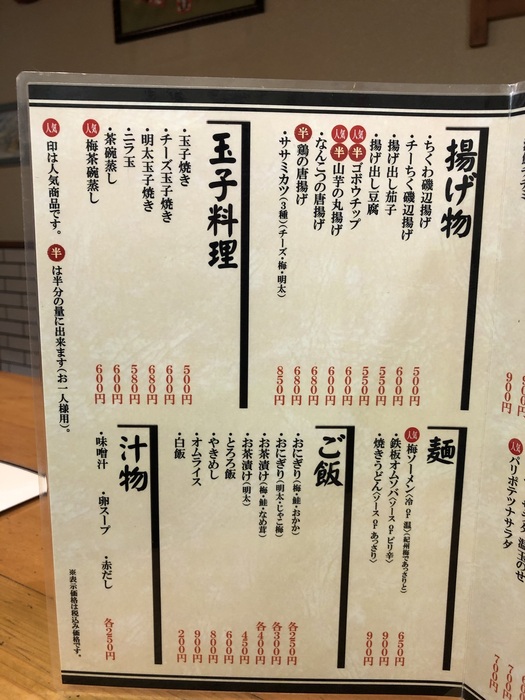 揚げ物
・ちくわ磯辺揚げ 500円
・チーちく磯辺揚げ 600円
・揚げ出し茄子 550円
・揚げ出し豆腐 550円
人気 半 ゴボウチップ 600円
人気 半 山芋の丸揚げ 600円
・なんこつの唐揚げ 680円
半 鶏の唐揚げ 680円
・ササミカツ(3種)(チーズ・梅・明太) 850円
玉子料理
・玉子焼き 500円
・チーズ玉子焼き 600円
・明太玉子焼き 680円
・ニラ玉 580円
・茶碗蒸し 600円
人気 梅茶碗蒸し 600円
人気 印は人気商品です。 半 は半分の量に出来ます(お一人様用)。
麺
人気 梅ソーメン(冷 or 温)(紀州梅であっさりと) 650円
・鉄板オムソバ(ソース or ピリ辛) 900円
・焼きうどん(ソース or あっさり) 900円
ご飯
・おにぎり(梅・鮭・おかか) 各250円
・おにぎり(明太・じゃこ梅) 各300円
・お茶漬け(梅・鮭・なめ茸) 各400円
・お茶漬け(明太) 450円
・とろろ飯 600円
・やきめし 800円
・オムライス 900円
・白飯 200円
汁物
・味噌汁 ・卵スープ ・赤だし 各250円
※表示価格は税込み価格です。
900円
人気 パリポテツナサラダ
700円